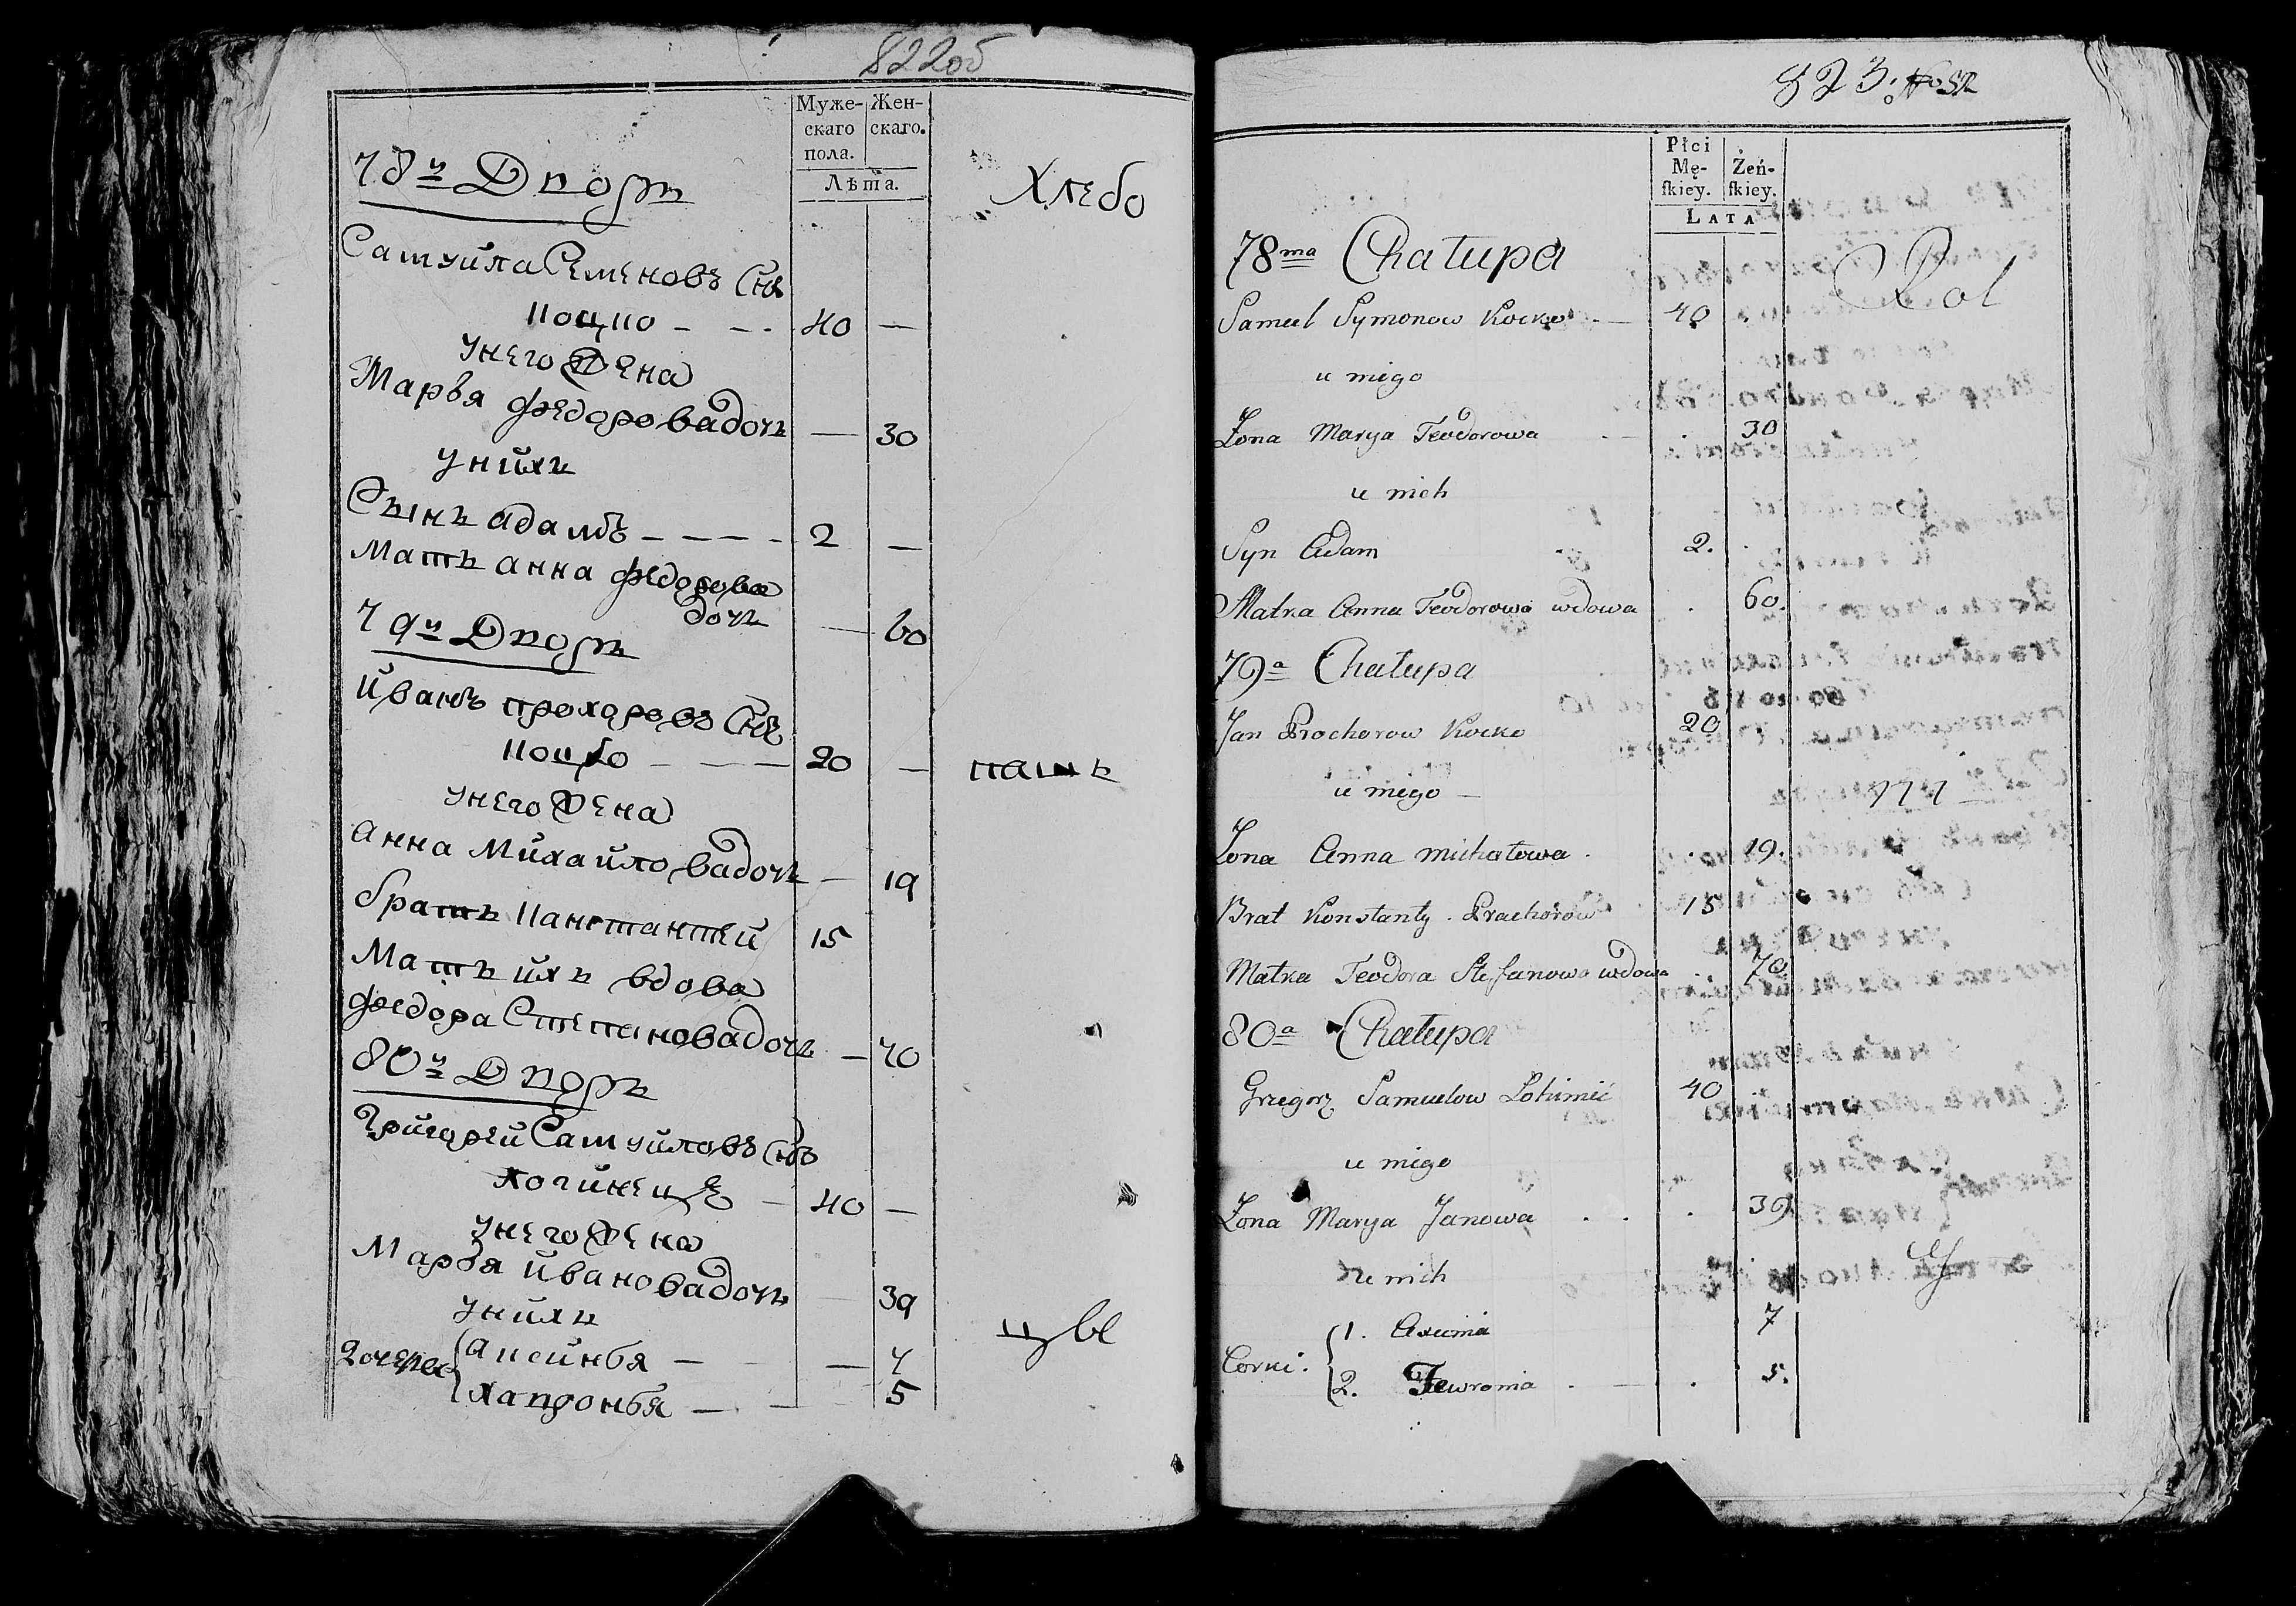 822об
Муже-
скаго
пола.
Жен-
скаго.
Лѣта.
78й Дворъ
Хлебо
Самуйла Семеновъ Снъ
Коцко - - - 40 —
У него Жена
Марвя Федоровадочь — 30
У нйхъ
Сынъ адамъ - - - - 2 —
Мать анна федорова
дочь — 60
79й Дворъ
Иванъ прохоровъ Снъ
Коцко - - - 20 —
пашъ
У него Жена
анна Михайловадочь — 19
братъ Канстантей 15
Мать ихъ вдова
федора Степановадочь — 70
80й Дворъ
Григорей Самуйловъ Снъ
40 —
У него Жена
Марвя Ивановадочь 39
У нйхъ
цы
Дочери { Аксинья — — 7
Хавронья — — 5
823.
Płci
Mę-
ſkiey.
Żeń-
ſkiey.
LATA
78ma Chałupa
Rol
Samuel Symonow Kocko — 40
u niego
Zona Marya Teodorowa 30
u nich
Syn Adam 2.
Matka Anna Teodorowa wdowa 60.
79a Chałupa
Jan Prochorow Kocko 20
u niego —
Zona Anna michałowa. 19.
Brat Konstanty. Prachorow 15
Matka Teodora Stefanowa wdowa 70
80a Chałupa
Grzegorz Samuelow 40
u niego
Zona Marya Janowa . . . 39
u nich
Corki. { 1. Axinia 7
2. Fewronia . — . 5.